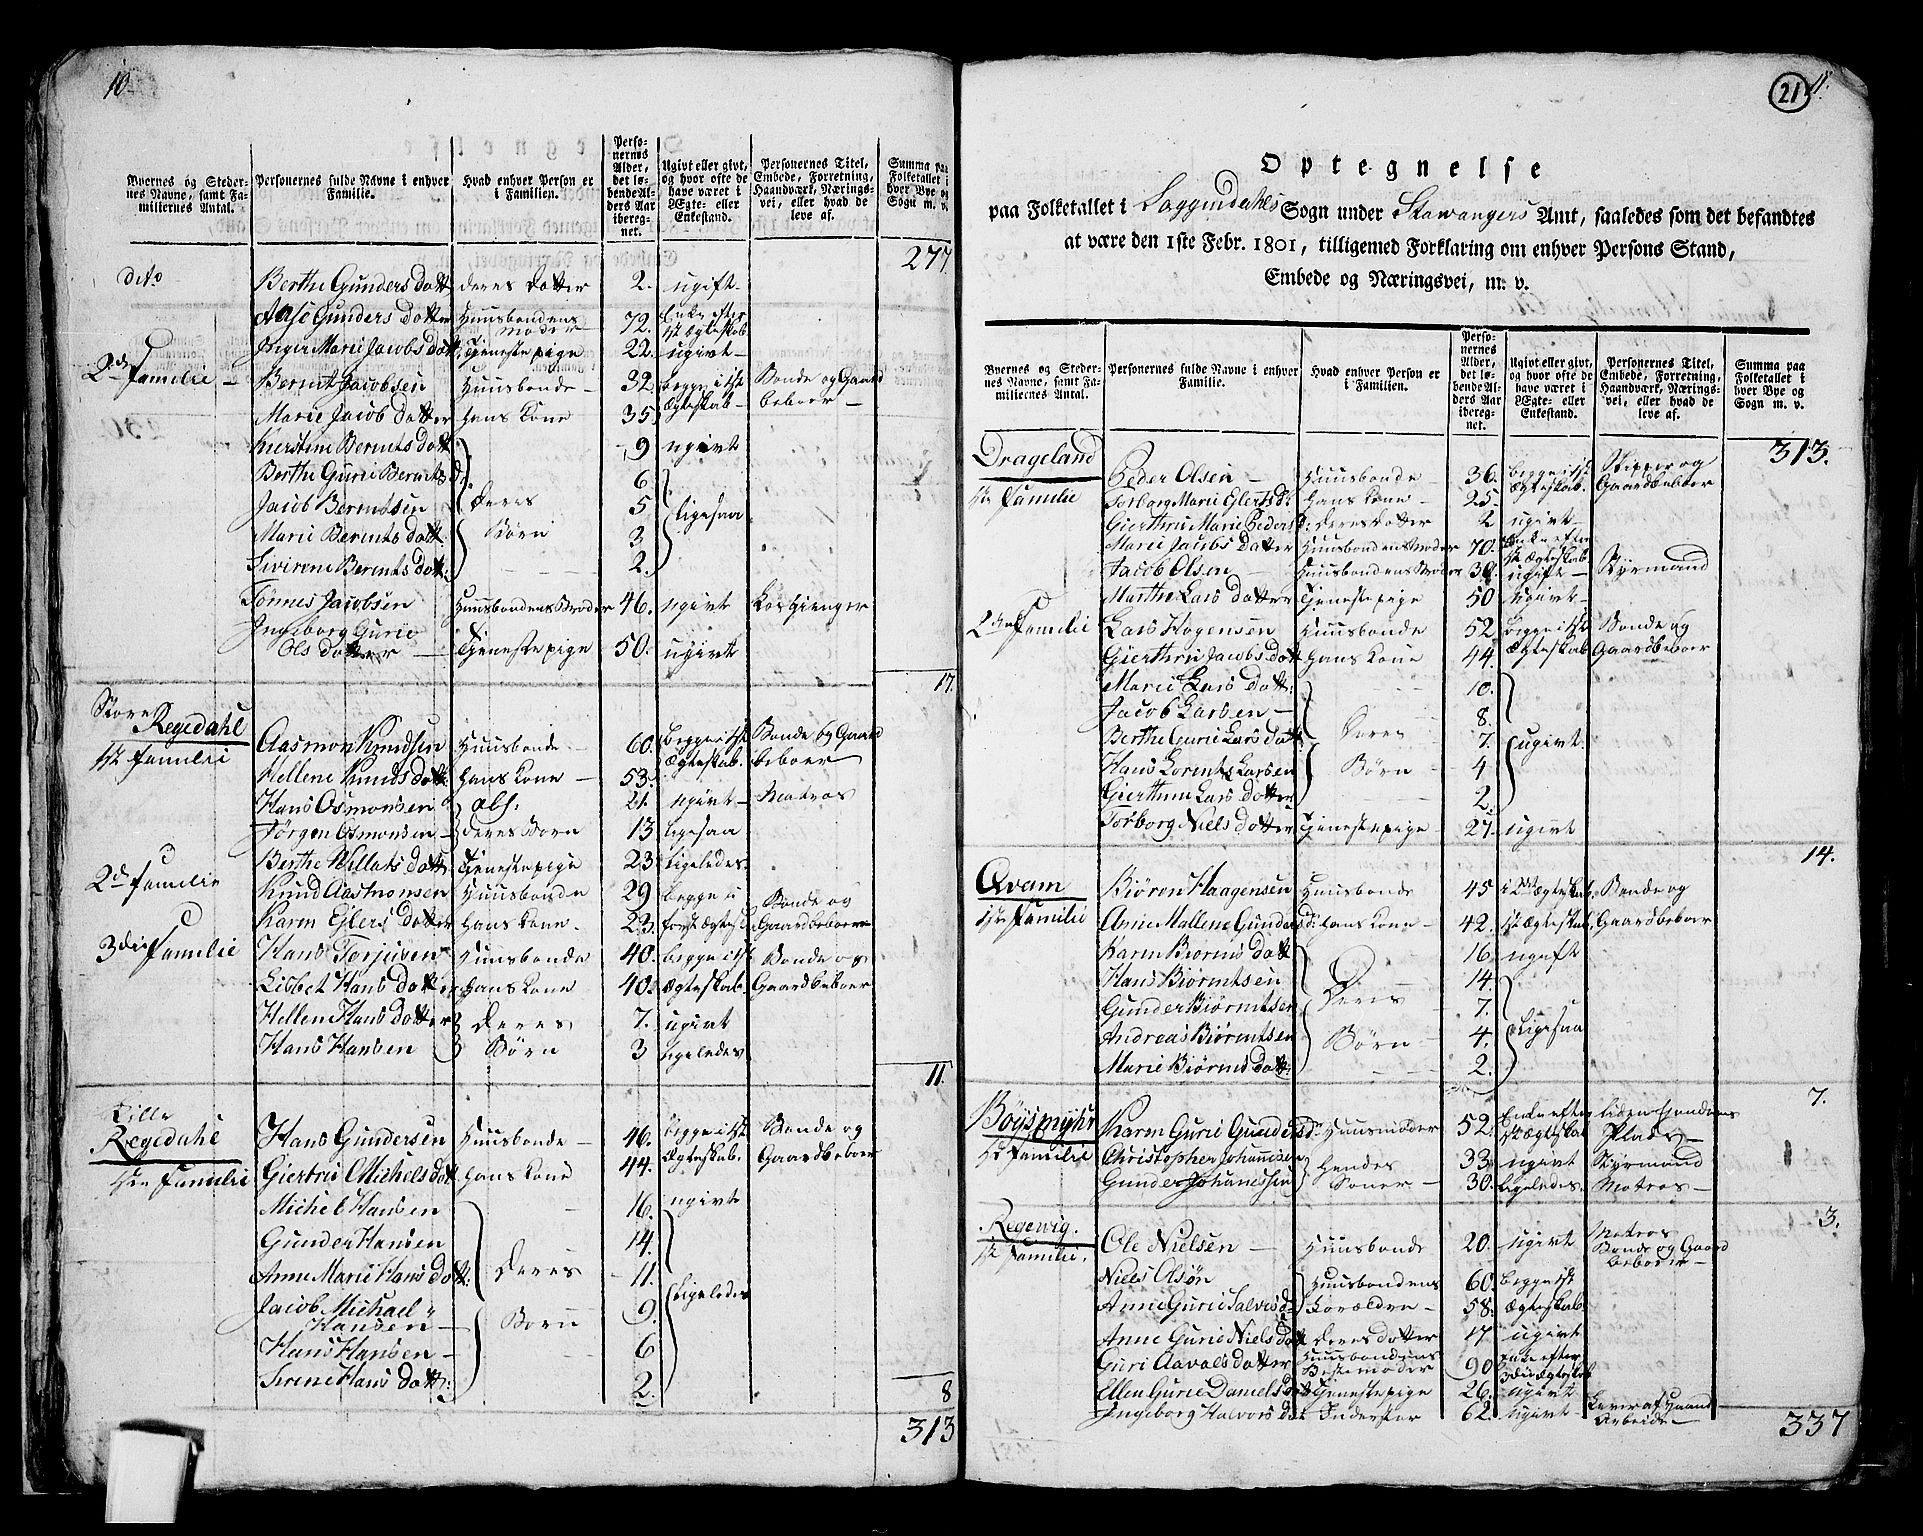 10.
Byernes og Steder-
nes Navne, samt Fa-
miliernes Antal.
Personernes fulde Navne i enhver
Familie.
Hvad enhver Person er
i Familien.
Perso-
nernes
Alder,
det lø-
bende Al-
ders Aar
ibereg-
net.
Ugivt eller givt,
og hvor ofte de
have været i
Ægte- eller
Enkestand.
Personernes Titel,
Embede, Forretning,
Haandværk, Nærings-
vei, eller hvad de
leve af.
Summa paa
Folketallet i
hver Bye og
Sogn m. v.
277
dito Berthe Gunders datt deres datter 2. ugift
Aase Gunders datter Huusbondens Moder 72. Enke efter 1st Ægteskab
Inger Marie Jacobs datt. Tjenestepige 22. ugivt
2de Familie Bernt Jacobsen Huusbonde 32 begge i 1st Bonde og Gaard
Marie Jacob datter hans Kone 35 Ægteskab beboer
Kierstine Bernts datt 9 ugivt
Berthe Gurie Bernts d. 6
Jacob Berntsen deres 5 ligesaa
Marie Berents datt. Børn 3
Sivirene Berents datt: 2.
Tønnes Jacobsen Huusbondens Broder 46. ugivt
Ingeborg Gurie
Ols datter Tjenestepige 50. ugivt
17.
Store
Regedahl Aasmon Knudsen Huusbonde 60. begge i 1st Bonde og Gaard
1ste Familie Hellene Knuds datt hans Kone 53. Ægteskab. beboer
Hans Osmonsen abs. 21. ugivt Matros
Jørgen Osmonsen deres Børn 13 ligesaa
Berthe Willats datt. Tjenestepige 23 ligeledes
2de Familie Knud Aasmonsen Huusbonde 29 begge i Bonde og
Karen Ejlers datter hans Kone. 23. første Ægtesk. Gaardbeboer
3die Familie Hans Torjusen Huusbonde 40. begge i 1st Bonde og
Lisbet Hans datter hans Kone 40. Ægteskab. Gaardbeboer
Hellen Hans datter deres 7. ugivt
Hans Hansen Børn 3 ligeledes
11.
Lille
Regedahl Hans Gundersen Huusbonde 46. begge i 1st Bonde og
1ste Familie Giertrue Michels datt hans Kone 44. Ægteskab. Gaardbeboer
Michel Hansen 16. ugivt
Gunder Hansen 14.
Anne Marie Hans datt. deres 11.
Jacob Michael
Hansen Børn 9. ligeledes
Hans Hansen 6
Serene Hans datt: 2.
8
313
21
11.
Optegnelse
paa Folketallet i Soggendahls Sogn under Stavangers Amt, saaledes som det befandtes
at være den 1ste Febr. 1801, tilligemed Forklaring om enhver Persons Stand,
Embede og Næringsvei, m. v.
Byernes og Steder-
nes Navne, samt Fa-
miliernes Antal.
Personernes fulde Navne i enhver
Familie.
Hvad enhver Person er
i Familien.
Perso-
nernes
Alder,
det lø-
bende Al-
ders Aar
ibereg-
net.
Ugivt eller givt,
og hvor ofte de
have været i
Ægte- eller
Enkestand.
Personernes Titel,
Embede, Forretning,
Haandværk, Nærings-
vei, eller hvad de
leve af.
Summa paa
Folketallet i
hver Bye og
Sogn m. v.
313.
Drageland Peder Olsen Huusbonde 36. begge i 1st Skipper og
1ste Familie Torborg Marie Elerts d: hans Kone 25. Ægteskab. Gaardbeboer
Gierthru Marie Peders d: deres datter 2 ugivt
Marie Jacobs datter Huusbondens Moder 70. Enke efter 1st Ægteskab
Jacob Olsen Huusbondens Broder 30. ugift Styrmand
Marthe Lars datter Tjenestepige 50 ugivt
2den Familie Lars Hogensen Huusbonde 52. begge i 1st Bonde og
Gierthru Jacobs datt hans Kone 44. Ægteskab Gaardbeboer
Marie Lars datt: 10.
Jacob Larsen 8.
Berthe Gurie Lars datt deres 7. ugivt
Hans Lorents Larsen Børn 4
Gierthrue Lars datter 2.
Torborg Niels datter Tjenestepige 27. ugivt
14.
Qvam Biøron Haagensen Huusbonde 45 i 2det Ægteskab Bonde og
1ste Familie Anne Mallene Gunders d: hans Kone 42. 1st Ægteskab. Gaardbeboer
Karen Biørns datt 16 ugift
Hans Biørntsen 14.
Gunder Biørntsen deres 7.
Andreas Biørntsen Børn 4. ligesaa
Marie Biørns datt: 2.
7.
Bøysmyhr Karen Gurie Gunders d: Huusmoder 52. Enke efter liden Ejendoms
1ste Familie 1st Ægteskab Plads
Christopher Johannesen hendes 33 ugivt Styrmand
Gunder Johannessen Sønner 30. ligeledes. Matros
3.
Regewig. Ole Nielsen Huusbonde 20. ugivt Matros
1ste Familie. Bonde og Gaard
beboer
Niels Olsøn Huusbondens 60. begge i 1st
Anne Gurie Salvis d: Forældre 58. Ægteskab.
Anne Gurie Niels datt deres datter 17 ugivt
Guri Aavals datter Huusbondens Bestemoder 90 Enke efter 3die Ægteskab
Ellen Gurie Daniels dat Tjenestepige 26. ugivt
Ingeborg Halvors dat Inderster 62. ugivt Lever af Haand
Arbeide
337